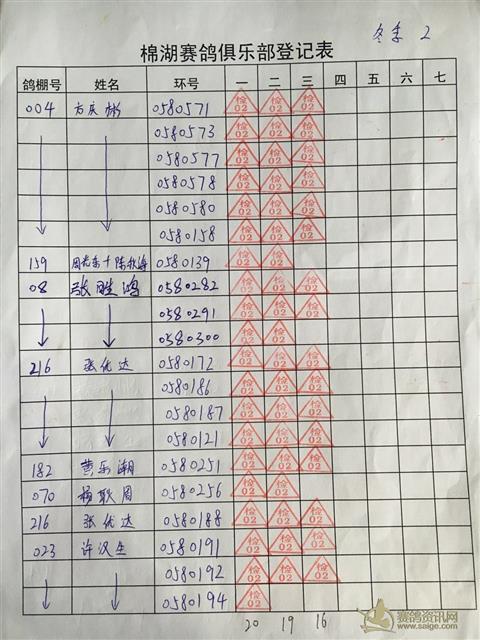 冬季 2
棉湖赛鸽俱乐部登记表
鸽棚号 姓名 环号 一 二 三 四 五 六 七
004 方庆彬 0580571 检02 检02 检02
0580573 检02 检02 检02
0580577 检02 检02 检02
0580578 检02 检02 检02
0580580 检02 检02 检02
0580158 检02 检02 检02
159 0580139 检02 检02
08 张胜鸿 0580282 检02 检02 检02
0580291 检02 检02 检02
0580300 检02 检02
216 张优达 0580172 检02 检02 检02
0580186 检02 检02 检02
0580187 检02 检02 检02
0580121 检02 检02 检02
182 黄乐潮 0580251 检02 检02 检02
070 杨耿周 0580256 检02 检02
216 张优达 0580188 检02 检02 检02
023 许汉生 0580191 检02 检02 检02
0580192 检02 检02 检02
0580194 检02
20 19 16
赛鸽资讯网
www.saige.com